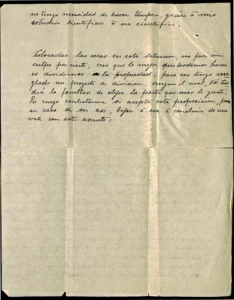 no tengo necesidad de hacer tiempo, gracias á mis
estudios científicos ó no científicos.
Colocadas las cosas en esta situacion, no por mi
culpa por cierto, creo que lo mejor que podemos hacer
es dividirnos la propiedad; para eso tengo arre-
glado un proyecto de division, en que
dá la facultad de elegir la parte que mas le guste.
Le ruego contestarme si acepta esta proposicion, pues
en caso de ser así, bajar á esa á concluir de una
vez con este asunto.